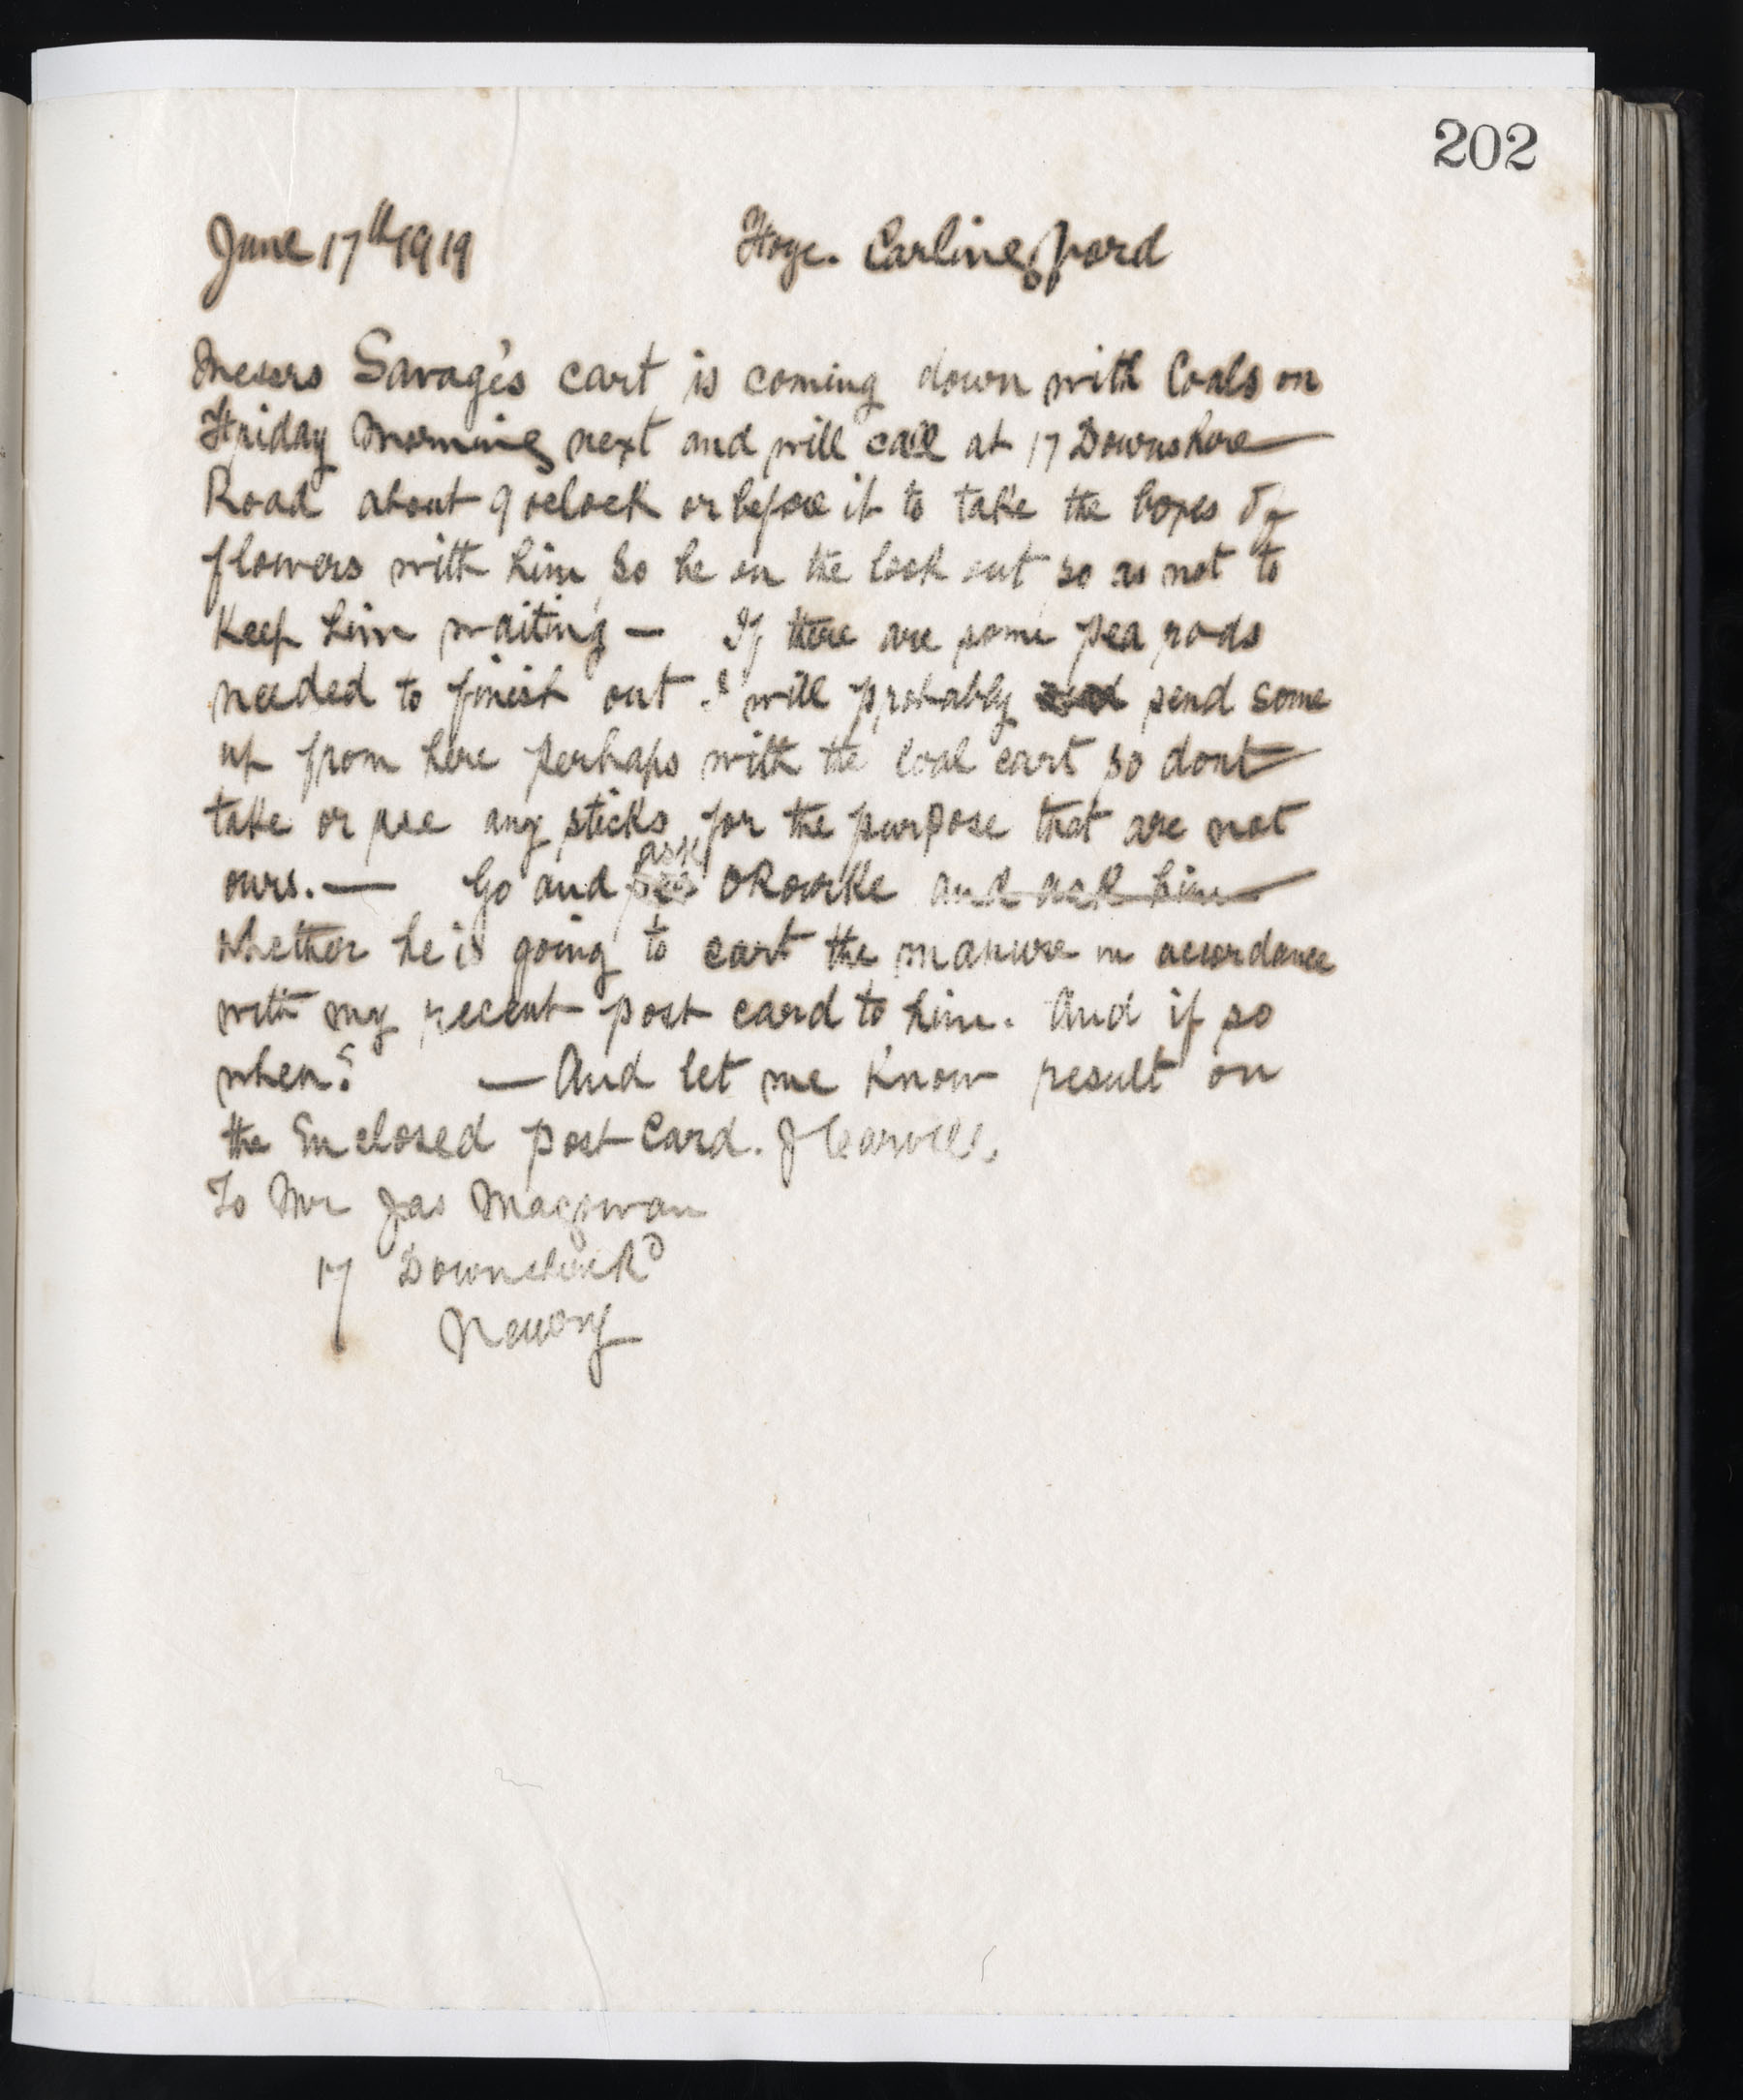 202
June 17th 1919 Carlingford
Messrs Savage's cart is coming down with Coals on
Friday Morning next and will call at 17 Downshire
Road about 9 oclock or before it to take the boxes of
flowers with him, so be on the look out so as not to
keep him waiting — If there are some pea rods
needed to finish out I will probably send some
up from here perhaps with the coal cart so dont
take or use any sticks for the purpose that are not
ours. — Go and ask ORourke and ask him
whether he is going to cart the manure in accordance
with my recent post card to him. And if so
when? — And let me know result on
the Enclosed post Card. J Carvill.
To Mr Jas Magowan
17 Downshire Rd
Newry